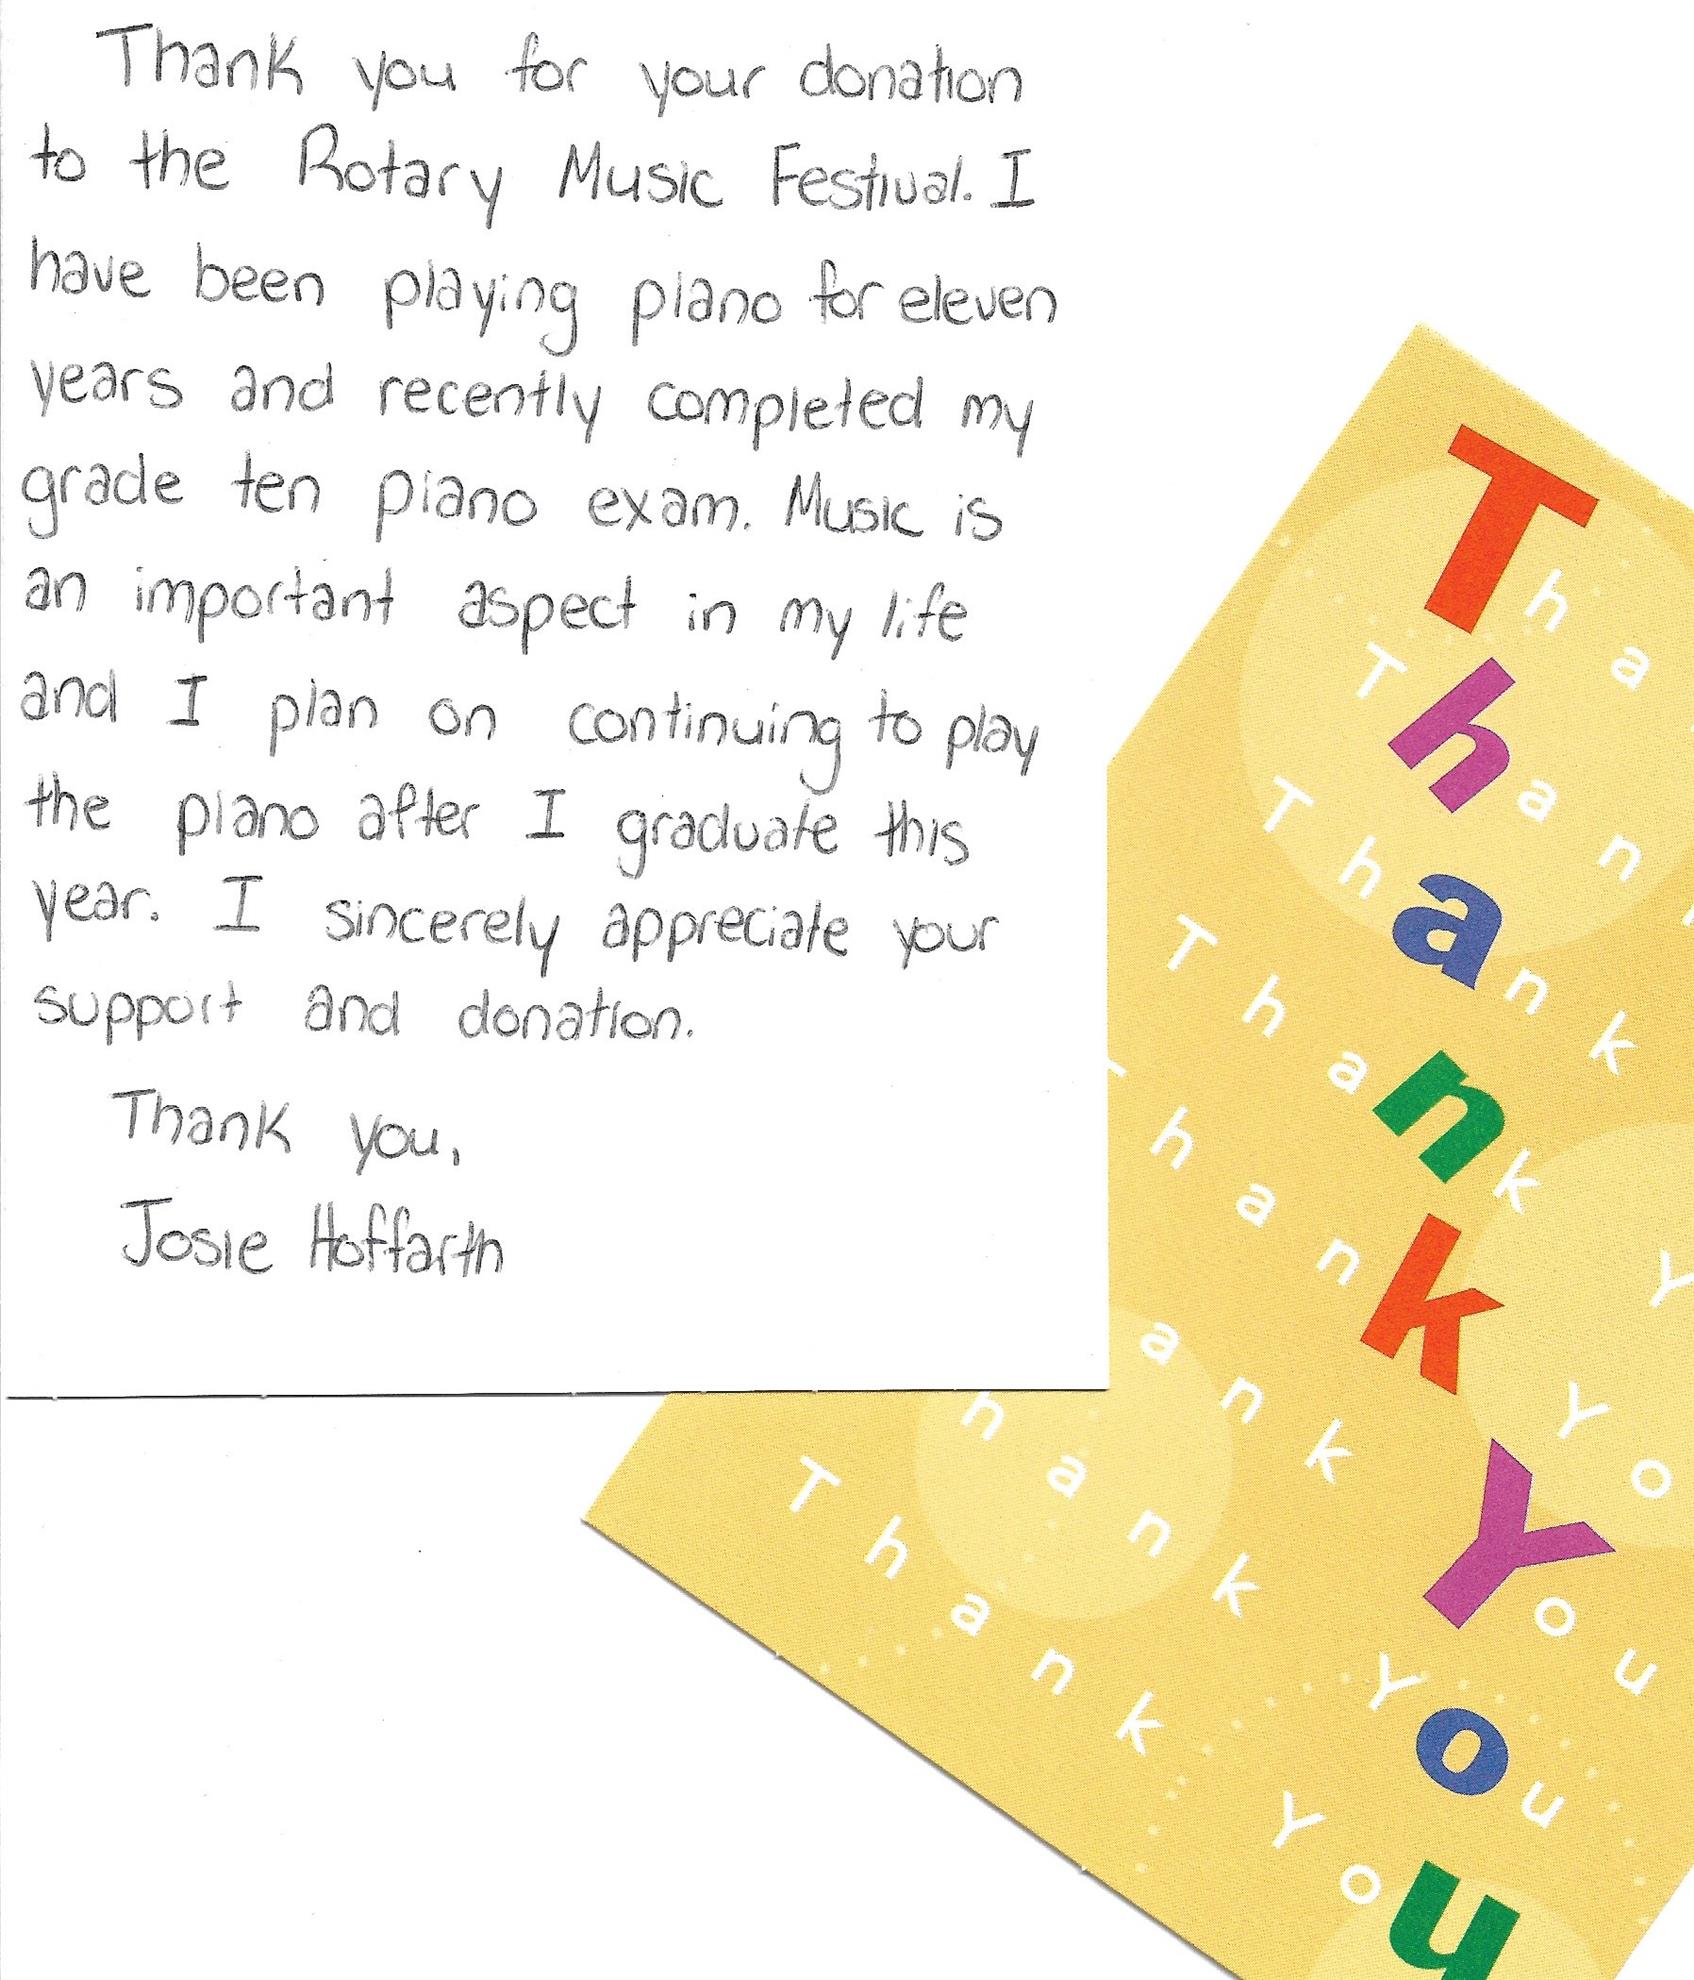 Thank you for your donation
to the Rotary Music Festival. I
have been playing piano for eleven
years and recently completed my
grade ten piano exam. Music is
an important aspect in my life
and I plan on continuing to play
the piano after I graduate this
year. I sincerely appreciate your
support and donation.
Thank you,
Josie Hoffarth
Thank You
Tha
Than
Thank
Thank You
hank You
Thank You